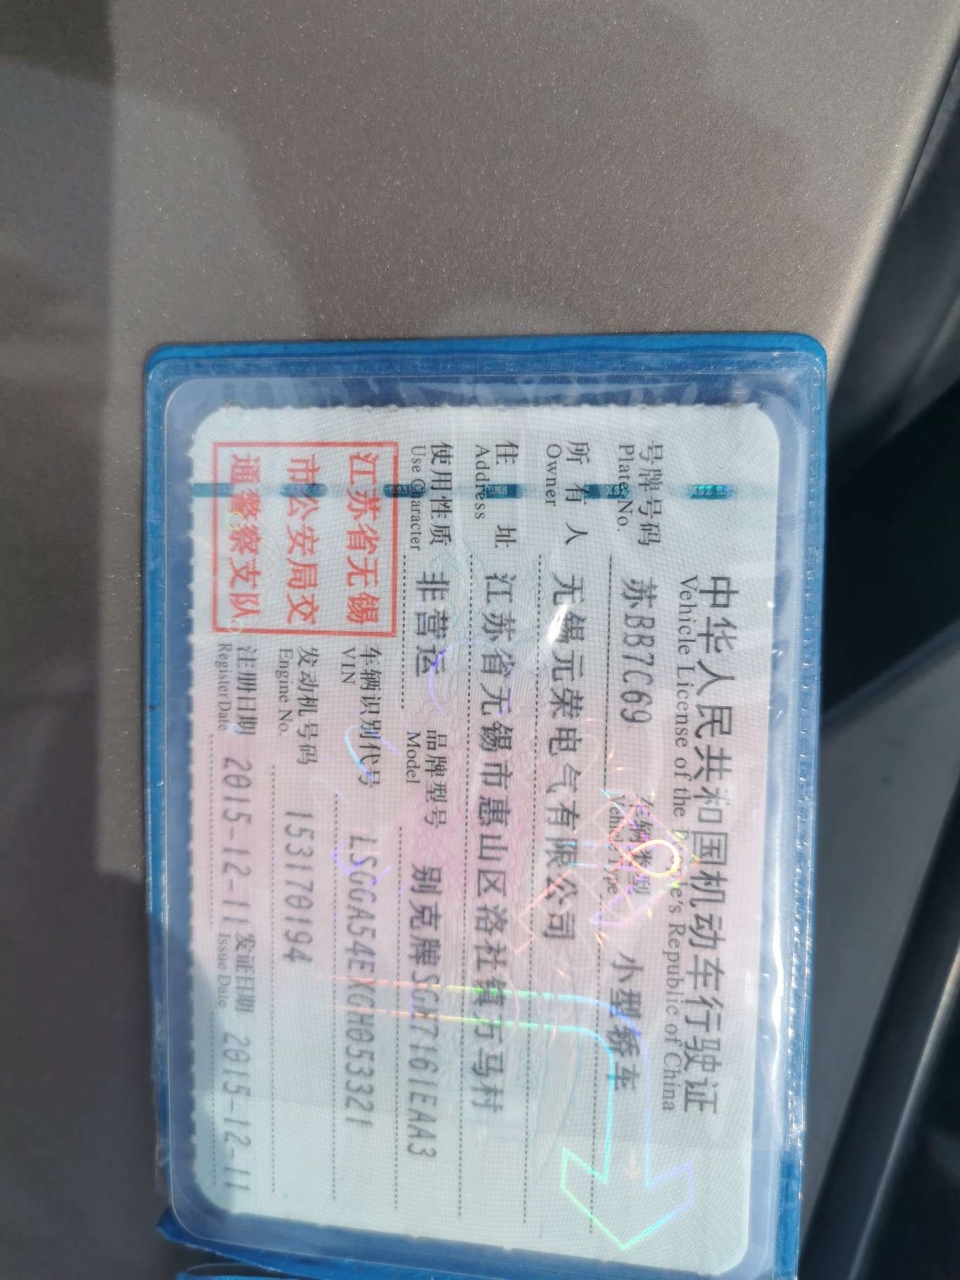 中华人民共和国机动车行驶证
Vehicle License of the People's Republic of China
号牌号码 苏BB7C69 车辆类型 小型轿车
Plate No. Vehicle Type
所有人 无锡元荣电气有限公司
Owner
住址 江苏省无锡市惠山区洛社镇万马村
Address
使用性质 非营运 品牌型号 别克牌SGM7161EAA3
Use Character Model
江苏省无锡
市公安局交
通警察支队
车辆识别代号 LSGGA54EXGH053321
VIN
发动机号码 153170194
Engine No.
注册日期 2015-12-11 发证日期 2015-12-11
Register Date Issue Date